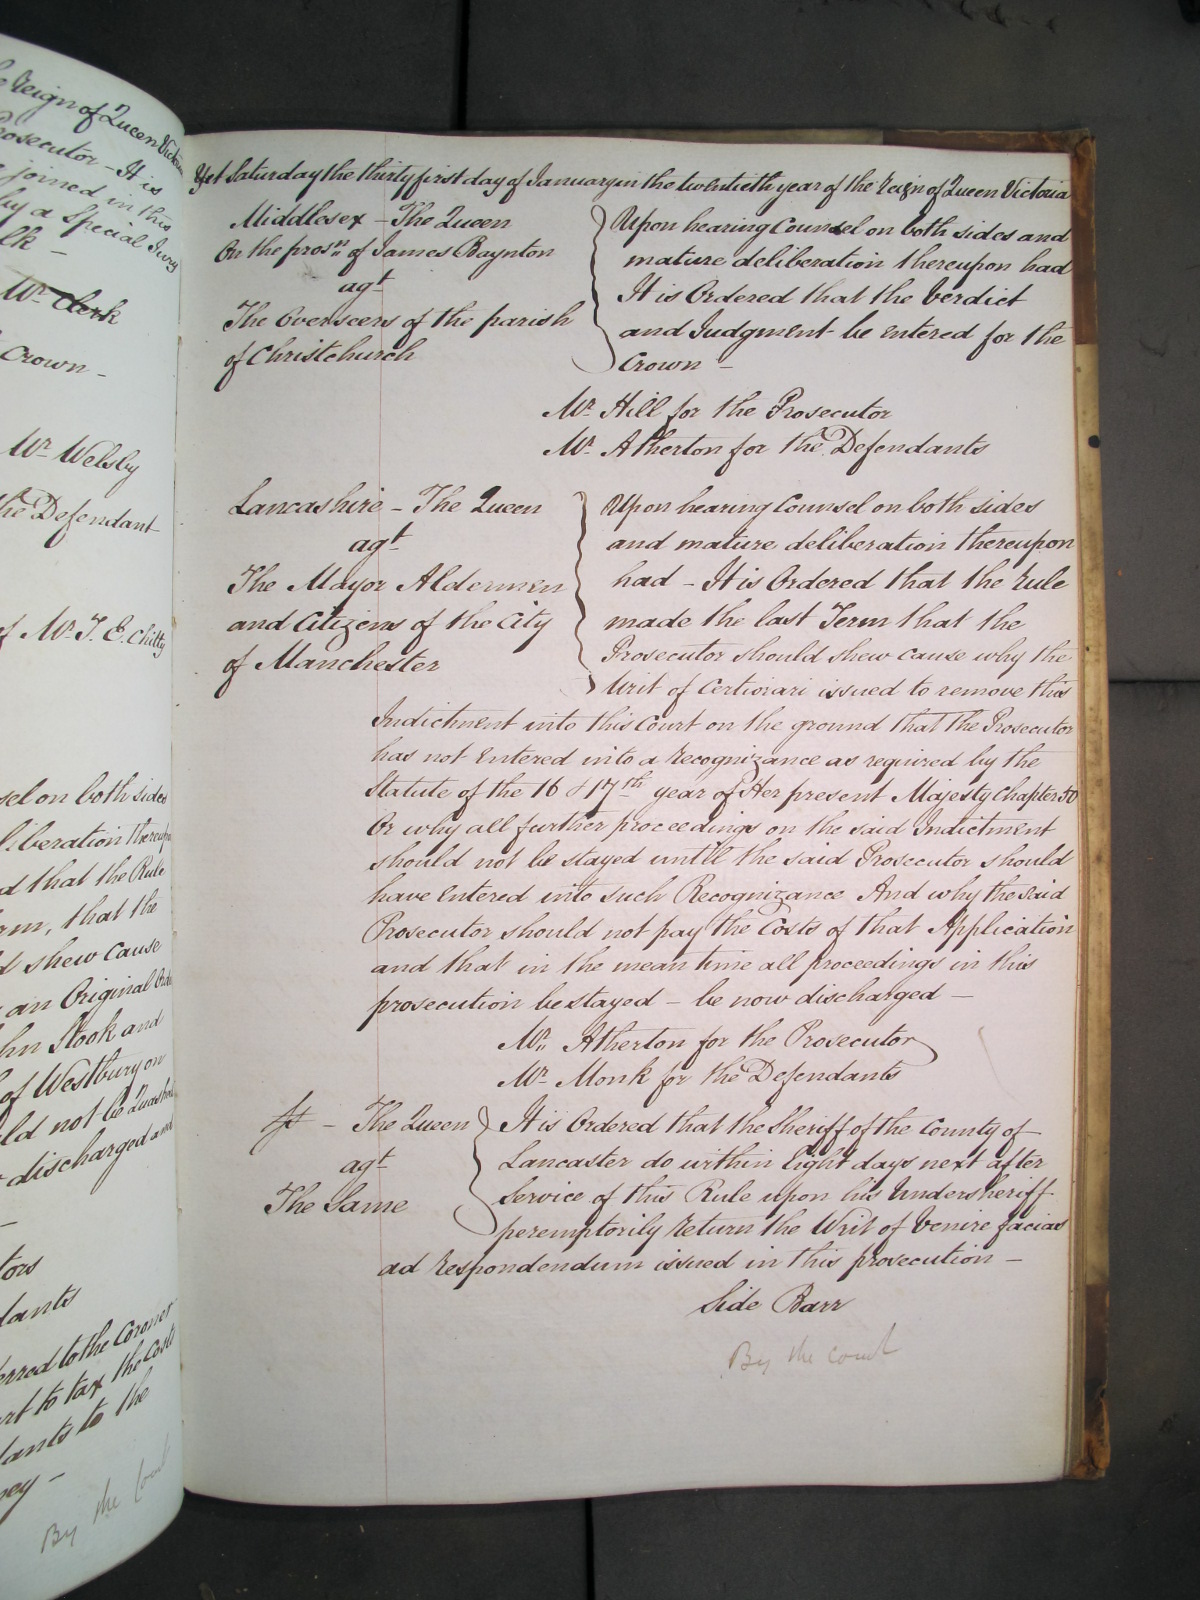 he Reign of Queen Victoria
Prosecutor - It is
e joined in this
by a Special Jury
lk -
Mr. Clerk
Crown -
Mr. Welsby
the Defendant
of Mr. T. E. Chitty
sel on both sides
liberation thereupon
d that the Rule
rm, that the
d shew cause
an Original Order
hn Stook and
of Westbury on
uld not be Quashed
discharged and
tors
dants
erred to the Coroner
rt to tax the Costs
dants to the
ney -
By the Court
Yet Saturday the thirty first day of January in the twentieth year of the Reign of Queen Victoria
Middlesex - The Queen
On the prosn. of James Baynton
agt.
The Overseers of the parish
of Christchurch
Upon hearing Counsel on both sides and
mature deliberation thereupon had
It is Ordered that the Verdict
and Judgment be entered for the
Crown -
Mr. Hill for the Prosecutor
Mr. Atherton for the Defendants
Lancashire - The Queen
agt.
The Mayor Aldermen
and Citizens of the City
of Manchester
Upon hearing Counsel on both sides
and mature deliberation thereupon
had - It is Ordered that the Rule
made the last Term that the
Prosecutor should shew cause why the
Writ of Certiorari issued to remove this
Indictment into this Court on the ground that the Prosecutor
has not entered into a recognizance as required by the
Statute of the 16 & 17th. year of Her present Majesty Chapter 30
Or why all further proceedings on the said Indictment
should not be stayed until the said Prosecutor should
have entered into such Recognizance And why the said
Prosecutor should not pay the Costs of that Application
and that in the mean time all proceedings in this
prosecution be stayed - be now discharged -
Mr. Atherton for the Prosecutor
Mr. Monk for the Defendants
- The Queen
agt.
The Same
It is Ordered that the Sheriff of the County of
Lancaster do within Eight days next after
Service of this Rule upon his Undersheriff
peremptorily return the Writ of Venire facias
ad respondendum issued in this prosecution -
Side Barr
By the Court